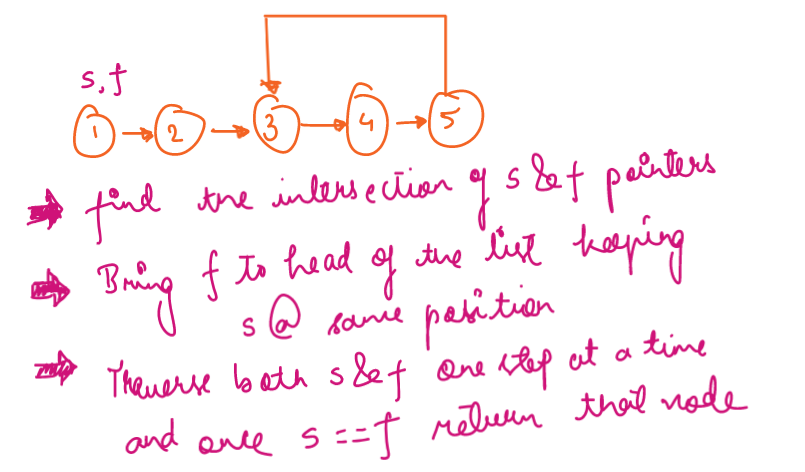 s, f
1 2 3 4 5
find the intersection of s & f pointers
Bring f to head of the list keeping
s @ same position
Traverse both s & f one step at a time
and once s == f return that node